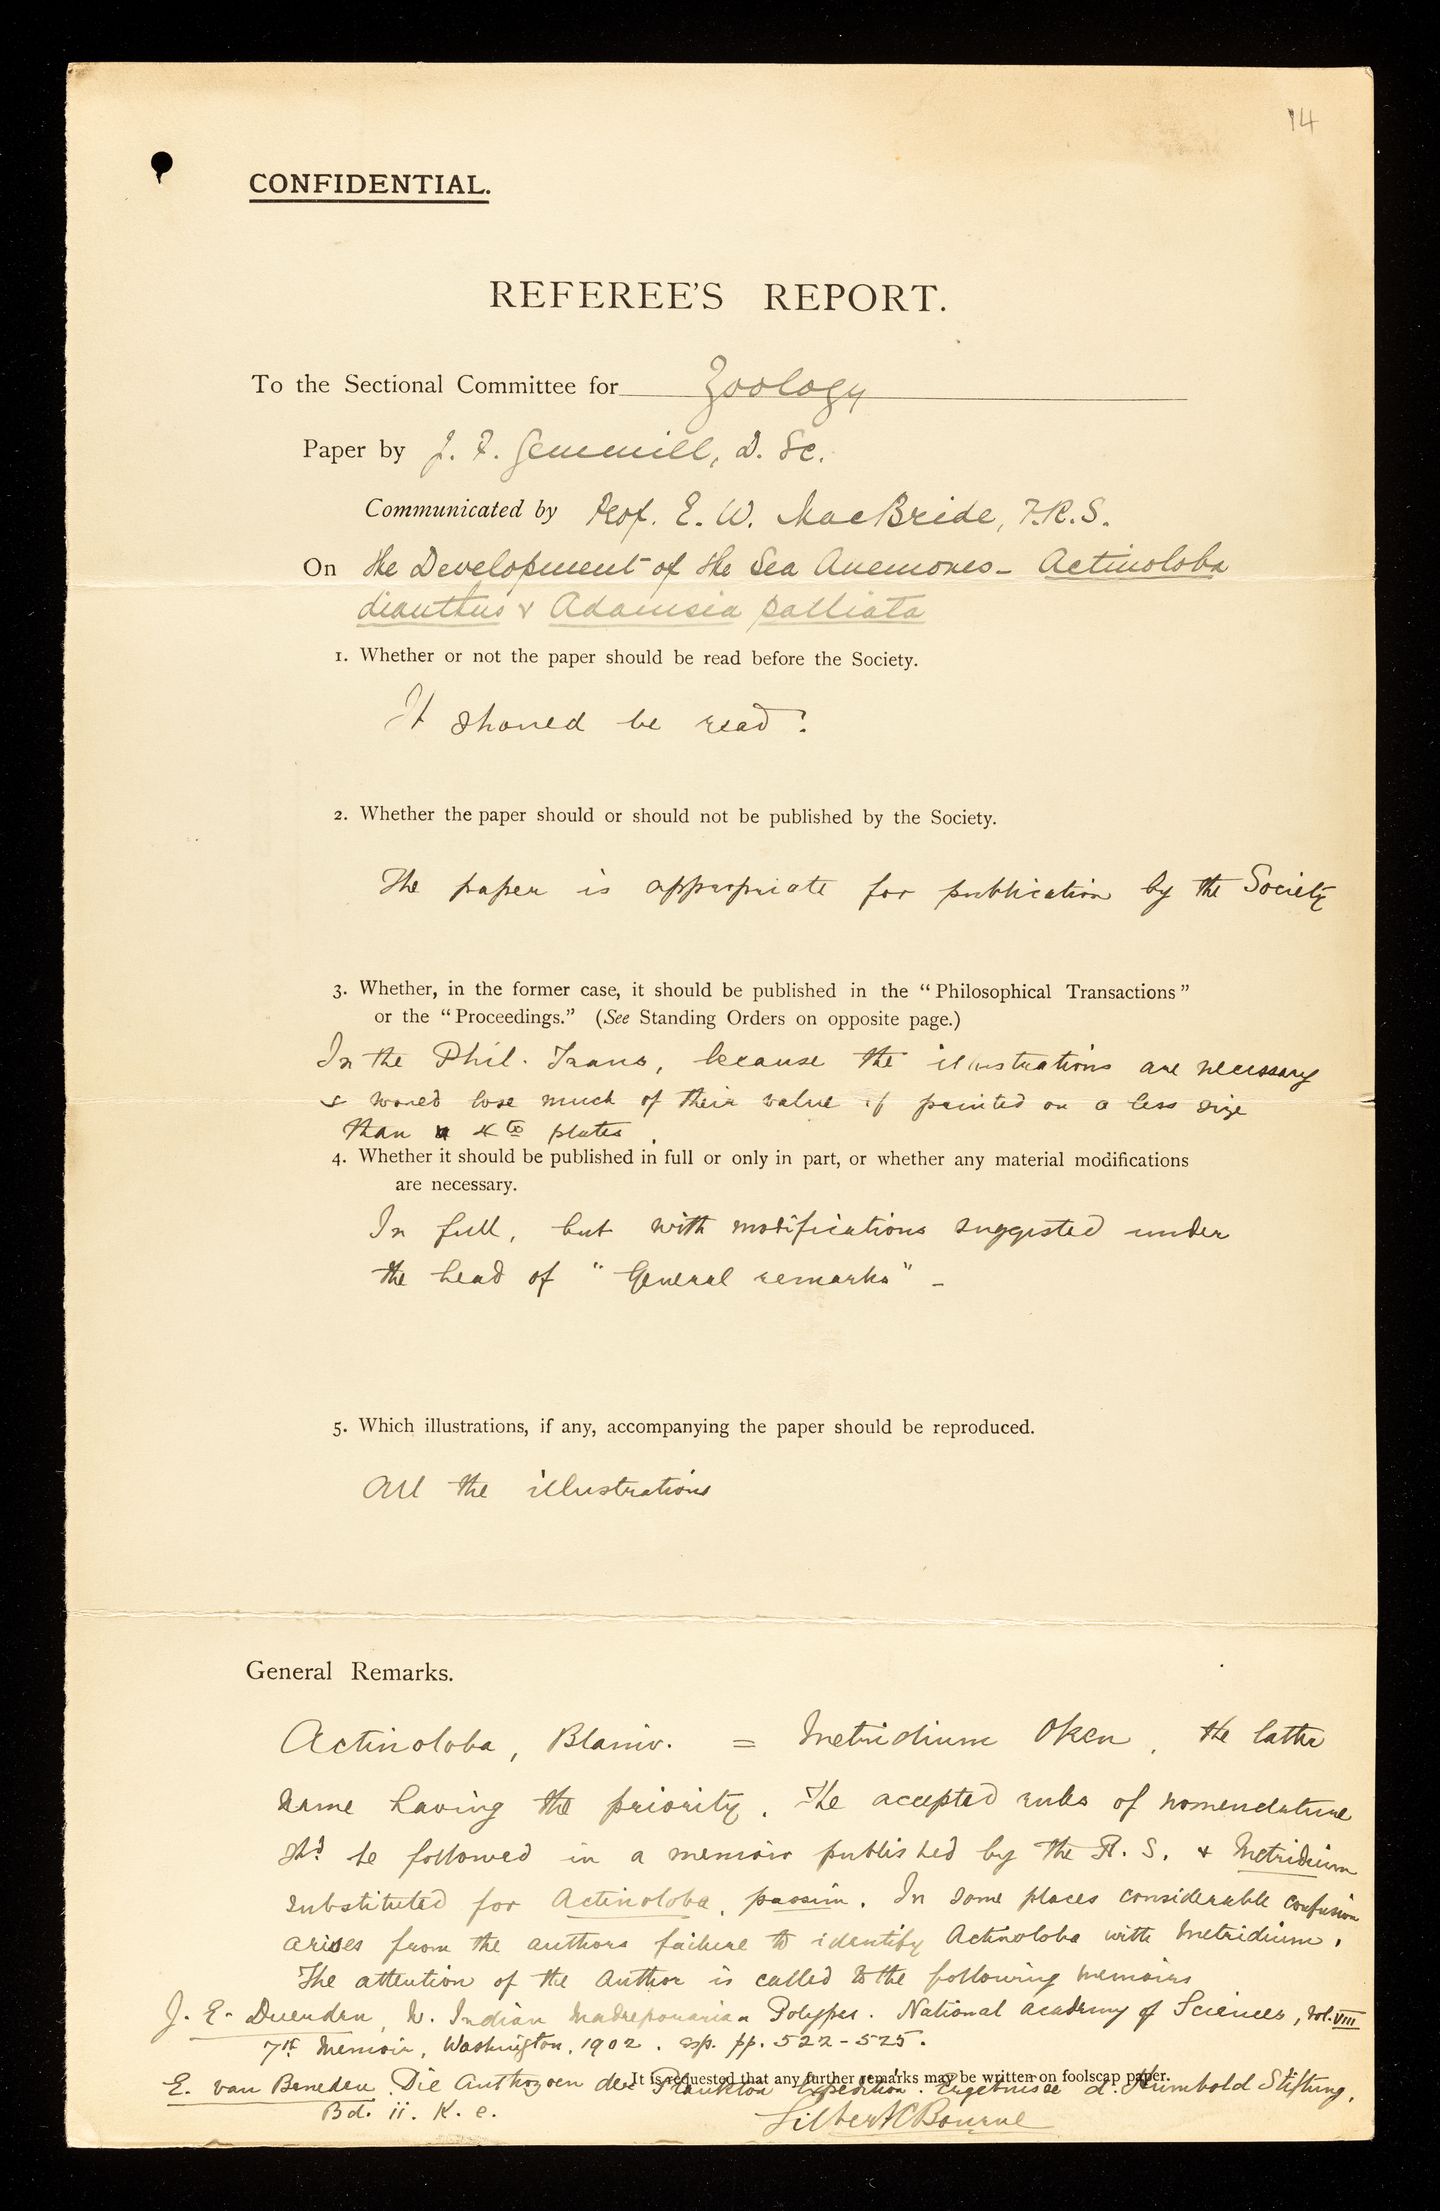 14
CONFIDENTIAL.
REFEREE'S REPORT.
To the Sectional Committee for Zoology
Paper by J. F. Gemmill, D. Sc.
Communicated by Prof. E. W. MacBride, F.R.S.
On the Development of the Sea Anemones - Actinoloba
dianthus & Adamsia palliata
1. Whether or not the paper should be read before the Society.
It should be read.
2. Whether the paper should or should not be published by the Society.
The paper is appropriate for publication by the Society
3. Whether, in the former case, it should be published in the "Philosophical Transactions"
or the "Proceedings." (See Standing Orders on opposite page.)
In the Phil. Trans, because the illustrations are necessary
& would lose much of their value if printed on a less size
than 4to plates.
4. Whether it should be published in full or only in part, or whether any material modifications
are necessary.
In full, but with modifications suggested under
the head of "General remarks" -
5. Which illustrations, if any, accompanying the paper should be reproduced.
All the illustrations
General Remarks.
Actinoloba, Blainv. = Metridium Oken. the latter
name having the priority. The accepted rules of nomenclature
shd. be followed in a memoir published by the R. S. & Metridium
substituted for Actinoloba, passim. In some places considerable confusion
arises from the authors failure to identify Actinoloba with Metridium.
The attention of the author is called to the following memoirs
J. E. Duerden, W. Indian Madreporarian Polyps. National Academy of Sciences, Vol. VIII
7th Memoir, Washington, 1902. esp. pp. 522-525.
E. van Beneden. Die Anthozoen der Plankton Expedition. Ergebnisse d. Humbold Stiftung,
It is requested that any further remarks may be written on foolscap paper.
Bd. ii. K. e.
Gilbert C Bourne